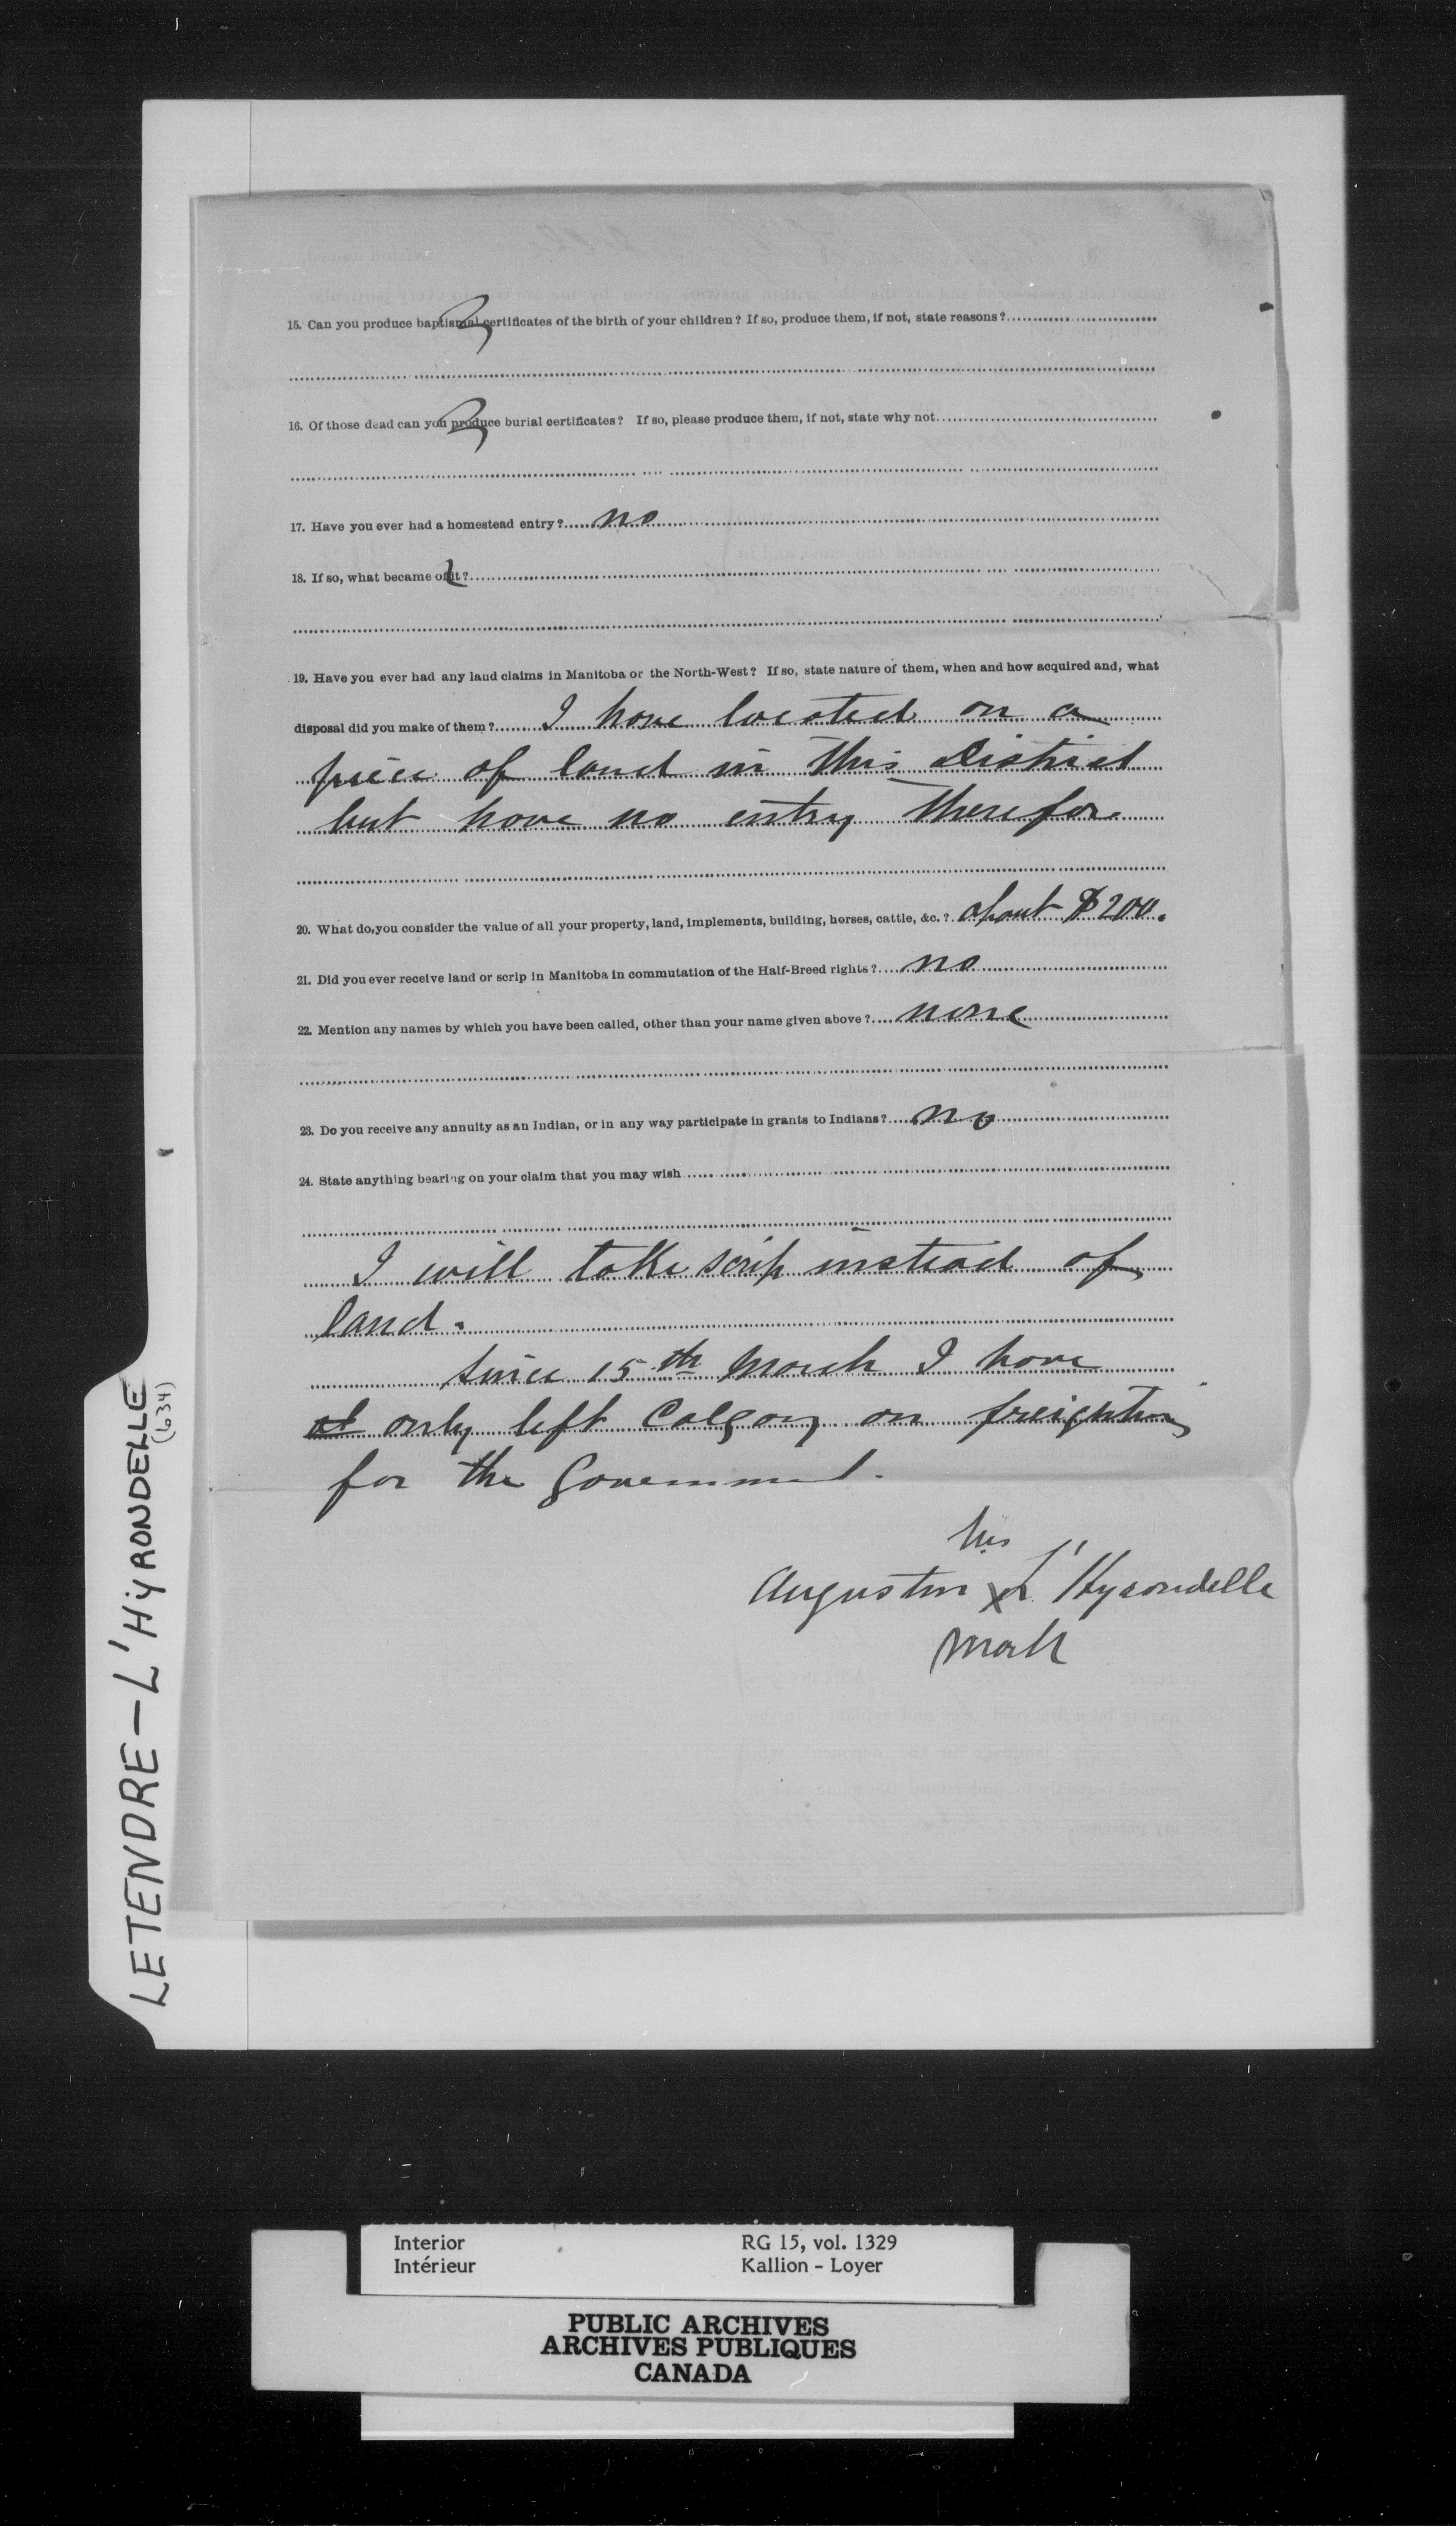 15. Can you produce baptismal certificates of the birth of your children? If so, produce them, if not, state reasons?
16. Of those dead can you produce burial certificates? If so, please produce them, if not, state why not
17. Have you ever had a homestead entry? no
18. If so, what became of it?
19. Have you ever had any land claims in Manitoba or the North-West? If so, state nature of them, when and how acquired and, what
disposal did you make of them? I have located on a
piece of land in this District
but have no entry therefor.
20. What do you consider the value of all your property, land, implements, building, horses, cattle, &c.? about $200.
21. Did you ever receive land or scrip in Manitoba in commutation of the Half-Breed rights? no
22. Mention any names by which you have been called, other than your name given above? none
23. Do you receive any annuity as an Indian, or in any way participate in grants to Indians? no
24. State anything bearing on your claim that you may wish
I will take scrip instead of
land.
Since 15th March I have
only left Calgary on freighting
for the Government.
his
Augustin X L'Hyrondelle
mark
LETENDRE - L'HYRONDELLE
(634)
Interior RG 15, vol. 1329
Intérieur Kallion - Loyer
PUBLIC ARCHIVES
ARCHIVES PUBLIQUES
CANADA